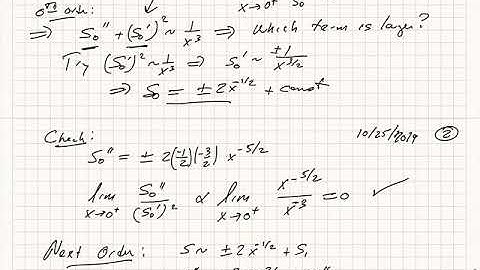 0th order:
x→0⁺ S₀
⇒ S₀'' + (S₀')² ~ 1/x³ ⇒ Which term is larger?
Try (S₀')² ~ 1/x³ ⇒ S₀' ~ ±1/x^{3/2}
⇒ S₀ = ±2x^{-1/2} + const
Check:
10/25/2019 ②
S₀'' = ± 2(-1/2)(-3/2) x^{-5/2}
lim x→0⁺ S₀''/(S₀')² ∝ lim x→0⁺ x^{-5/2}/x^{-3} = 0 ✓
Next Order: S ~ ±2x^{-1/2} + S₁